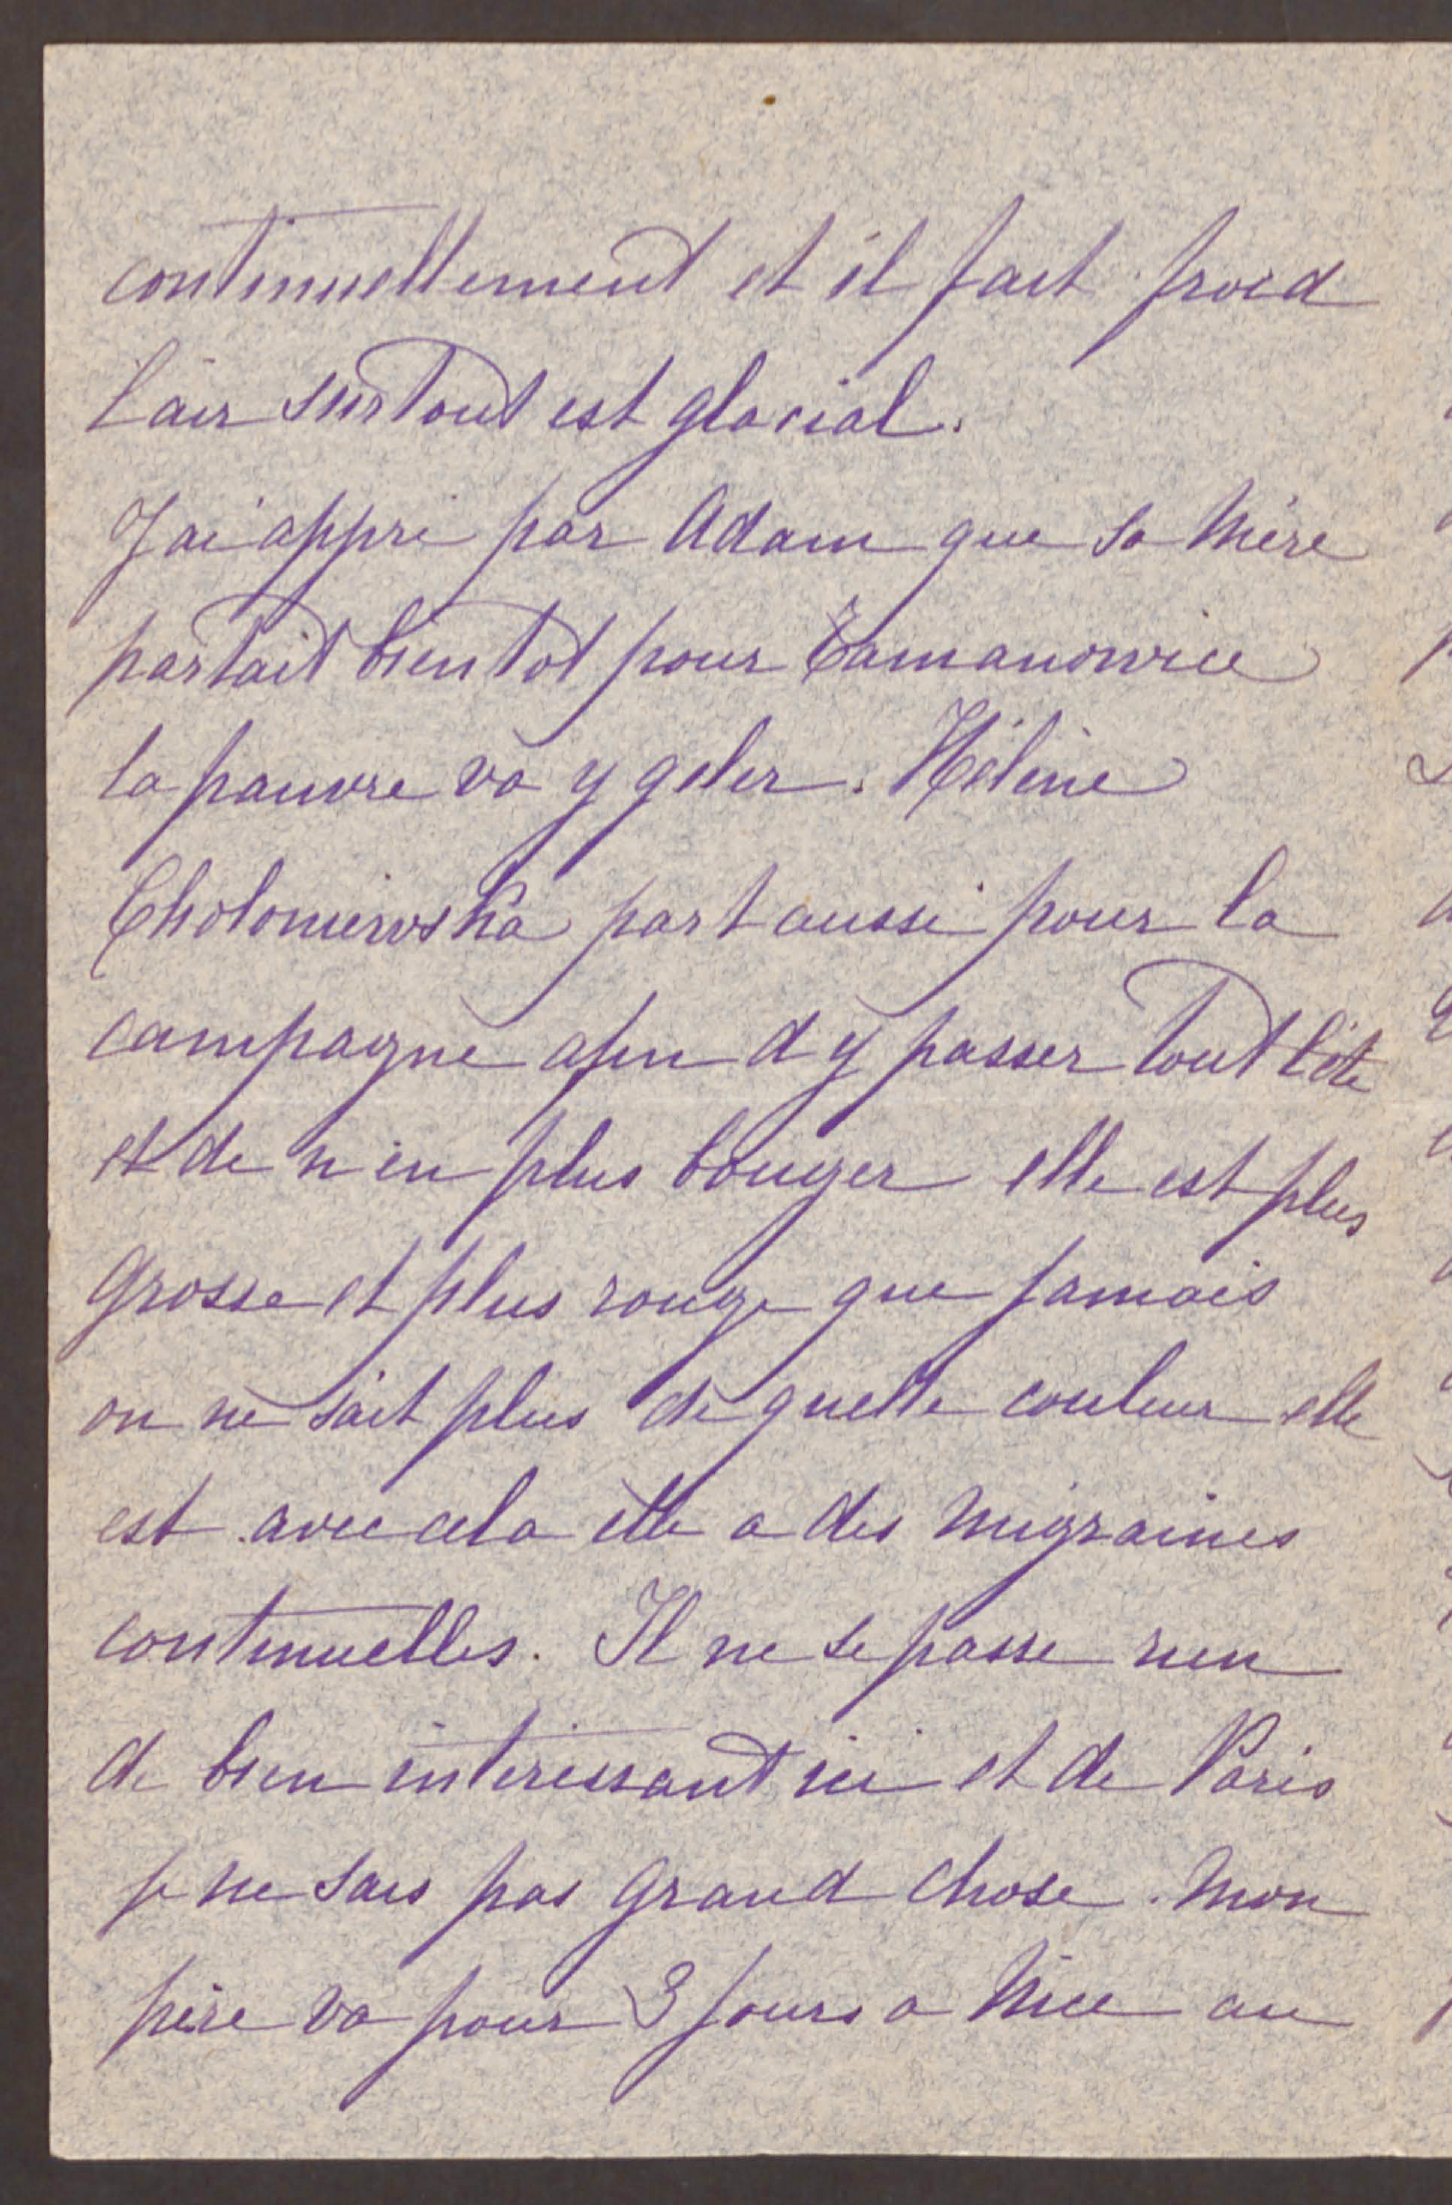 continuellement et il fait froid
l'air surtout est glacial.
J'ai appri par Adam que sa Mère
partait bientot pour
la pauvre va y geler. Hélène
Choloniewska part aussi pour la
campagne afin d'y passer tout l'été
et de n'en plus bouger elle est plus
grosse et plus rouge que jamais
on ne sait plus de quelle couleur elle
est avec cela elle a des migraines
continuelles. Il ne se passe rien
de bien interessant ici et de Paris
je ne sais pas grand chose. Mon
père va pour 3 jours a Nice au